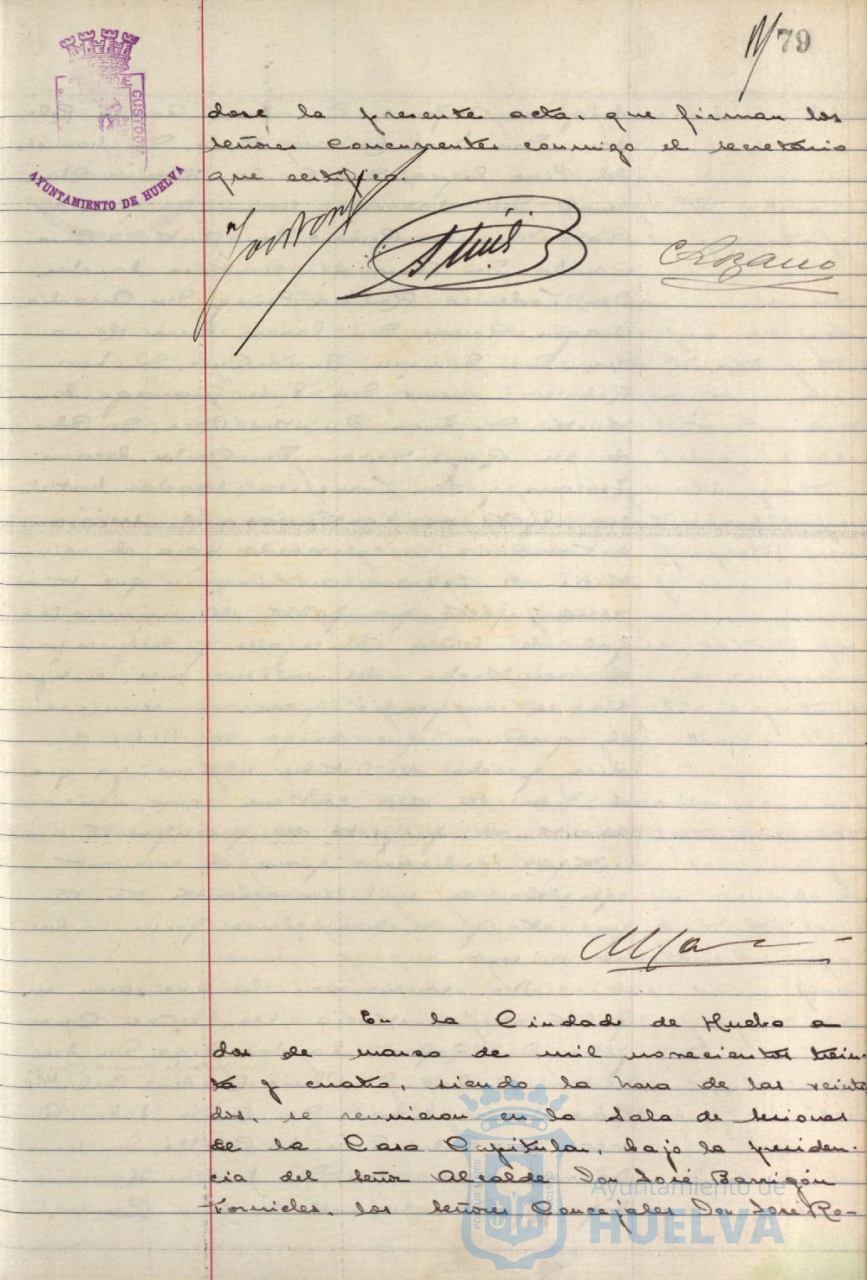 79
PORTUS MARIS ET TERRÆ CUSTODIA
AYUNTAMIENTO DE HUELVA
dose la presente acta, que firman los
señores concurrentes conmigo el secretario
que certifico.
C Lozano
En la Ciudad de Huelva a
dos de marzo de mil novecientos trein-
ta y cuatro, siendo la hora de las veinte
dos, se reunieron en la Sala de sesiones
de la Casa Capitular, bajo la presiden-
cia del señor Alcalde Don José Barrigón
Fornieles, los señores Concejales Don José Ro-
Ayuntamiento de
HUELVA